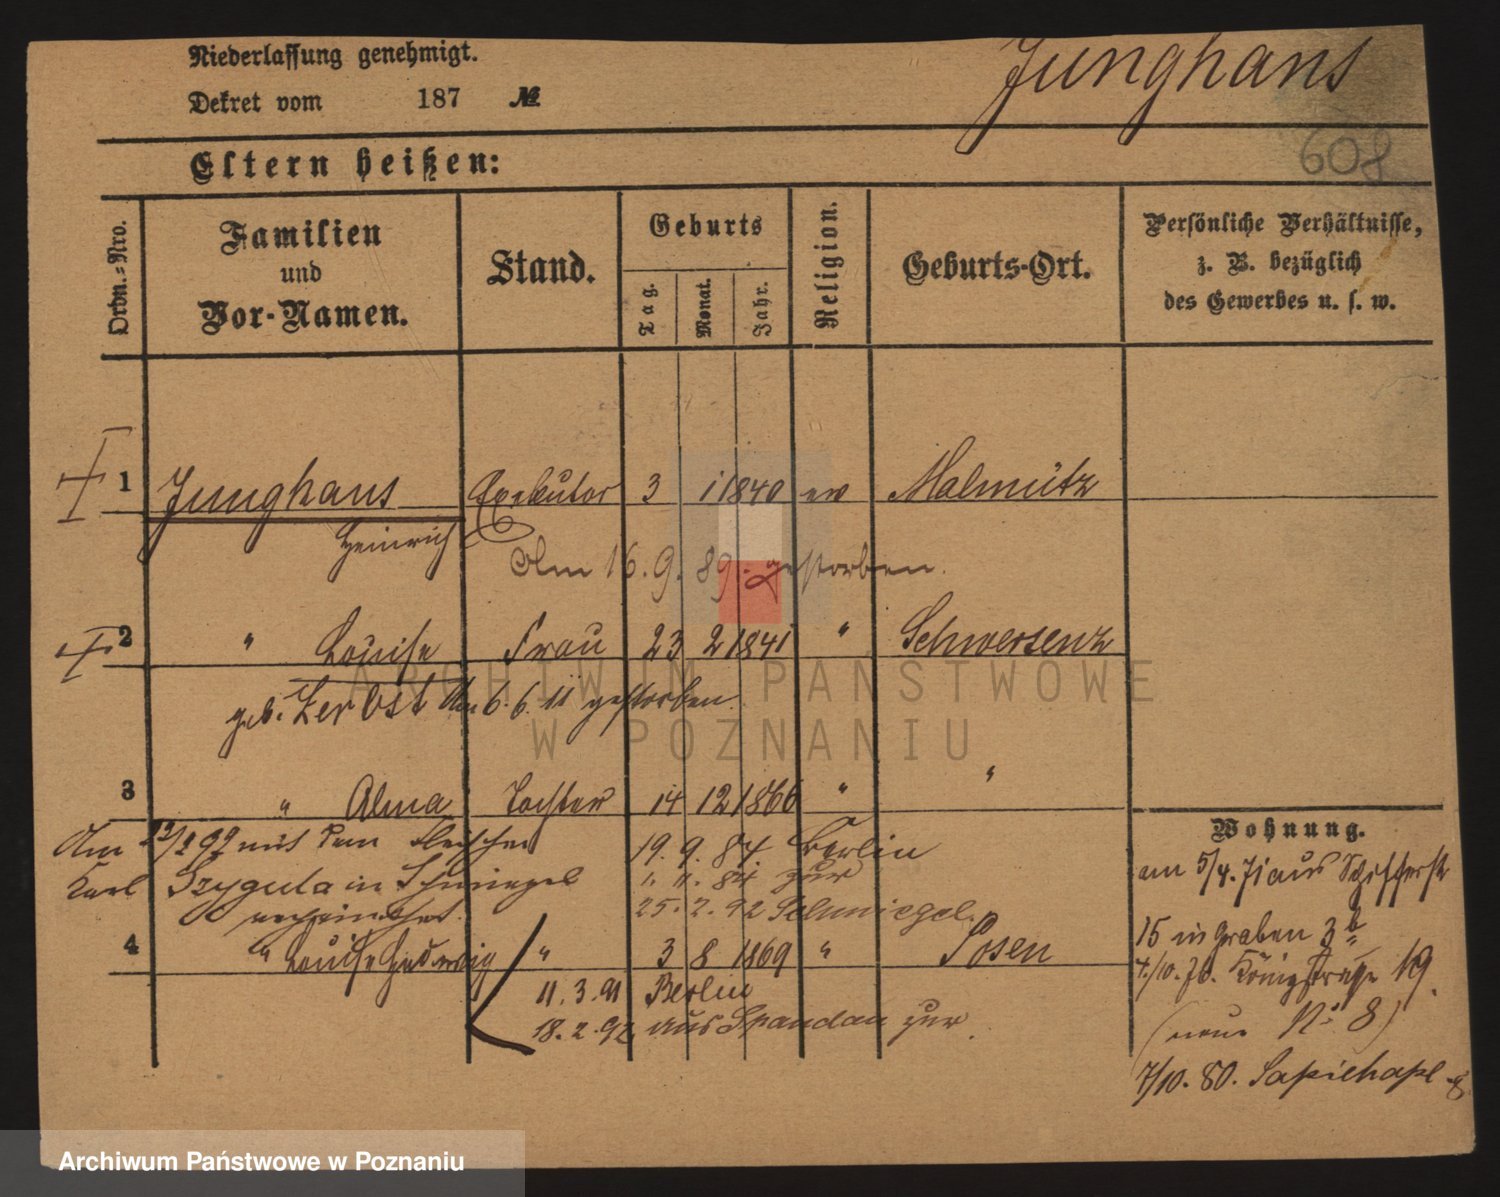 Niederlassung genehmigt.
Junghans
Dekret vom 187 №
608
Eltern heißen:
Ordn.=Nro.
Familien und Vor-Namen.
Stand.
Geburts
Tag.
Monat.
Jahr.
Religion.
Geburts-Ort.
Persönliche Verhältnisse,
z. B. bezüglich
des Gewerbes u. s. w.
1 Junghans Exekutor 3 1 1840 ev Malmütz
Heinrich
Am 16. 9. 89. gestorben.
2 " Louise Frau 23 2 1841 " Schwersenz
geb. Zerbst Am 6. 6. 11 gestorben.
3 " Alma Tochter 14 12 1866 " "
Am 92 mit dem Fleischer 19. 9. 84 Berlin
Karl Szygula in Schmiegel 11. 84 zur
verheirathet. 25. 2. 92 Schmiegel.
4 " Louise Hedwig " 3 8 1869 " Posen
11. 3. 91 Berlin
18. 2. 92 aus Spandau zur
Wohnung.
am 5/4. 71 aus Schifferstr
15 in Graben 3b
4/10. Königstraße 19.
(neue No 8)
7/10. 80. Sapiehapl 8.
ARCHIWUM PAŃSTWOWE
W POZNANIU
Archiwum Państwowe w Poznaniu